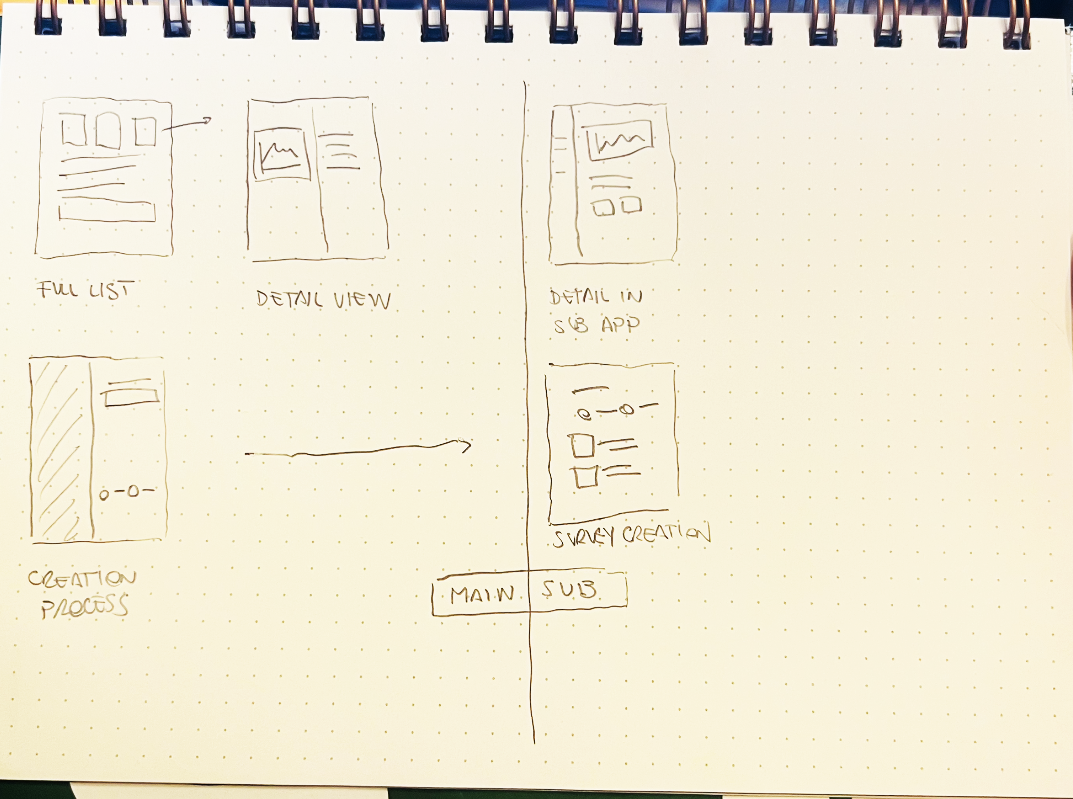 FULL LIST
DETAIL VIEW
DETAIL IN
SUB APP
CREATION
PROCESS
SURVEY CREATION
MAIN SUB